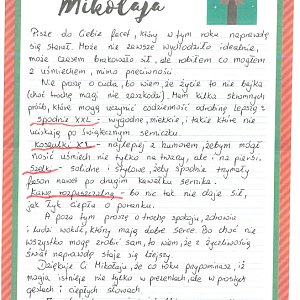 Mikołaja
Piszę do Ciebie facet, który w tym roku naprawdę
się starał. Może nie zawsze wychodziło idealnie,
może czasem brakowało sił, ale robiłem co mogłem
z uśmiechem, mimo przeciwności
Nie proszę o cuda, bo wiem, że życie to nie bajka
(choć trochę magii nie zaszkodzi). Mam kilka skromnych
próśb, które mogą uczynić codzienność odrobinę lepszą:
- spodnie XXL - wygodne, miękkie, takie które nie
uciskają po świątecznym serniczku
- Koszulki XL - najlepiej z humorem, żebym mógł
nosić uśmiech nie tylko na twarzy, ale i na piersi.
- Szelki - solidne i stylowe, żeby spodnie trzymały
fason nawet po drugim kawałku sernika.
- Kawa rozpuszczalna - bo nic tak nie daje sił,
jak łyk ciepła o poranku.
A poza tym proszę o trochę spokoju, zdrowia
i ludzi wokół, którzy mają dobre serce. Bo choć nie
wszystko mogę zrobić sam, to wiem, że z życzliwością
świat naprawdę staje się lżejszy.
Dziękuję Ci Mikołaju, że co roku przypominasz, iż
magia istnieje nie tylko w prezentach, ale w prostych
gestach i ciepłych słowach.